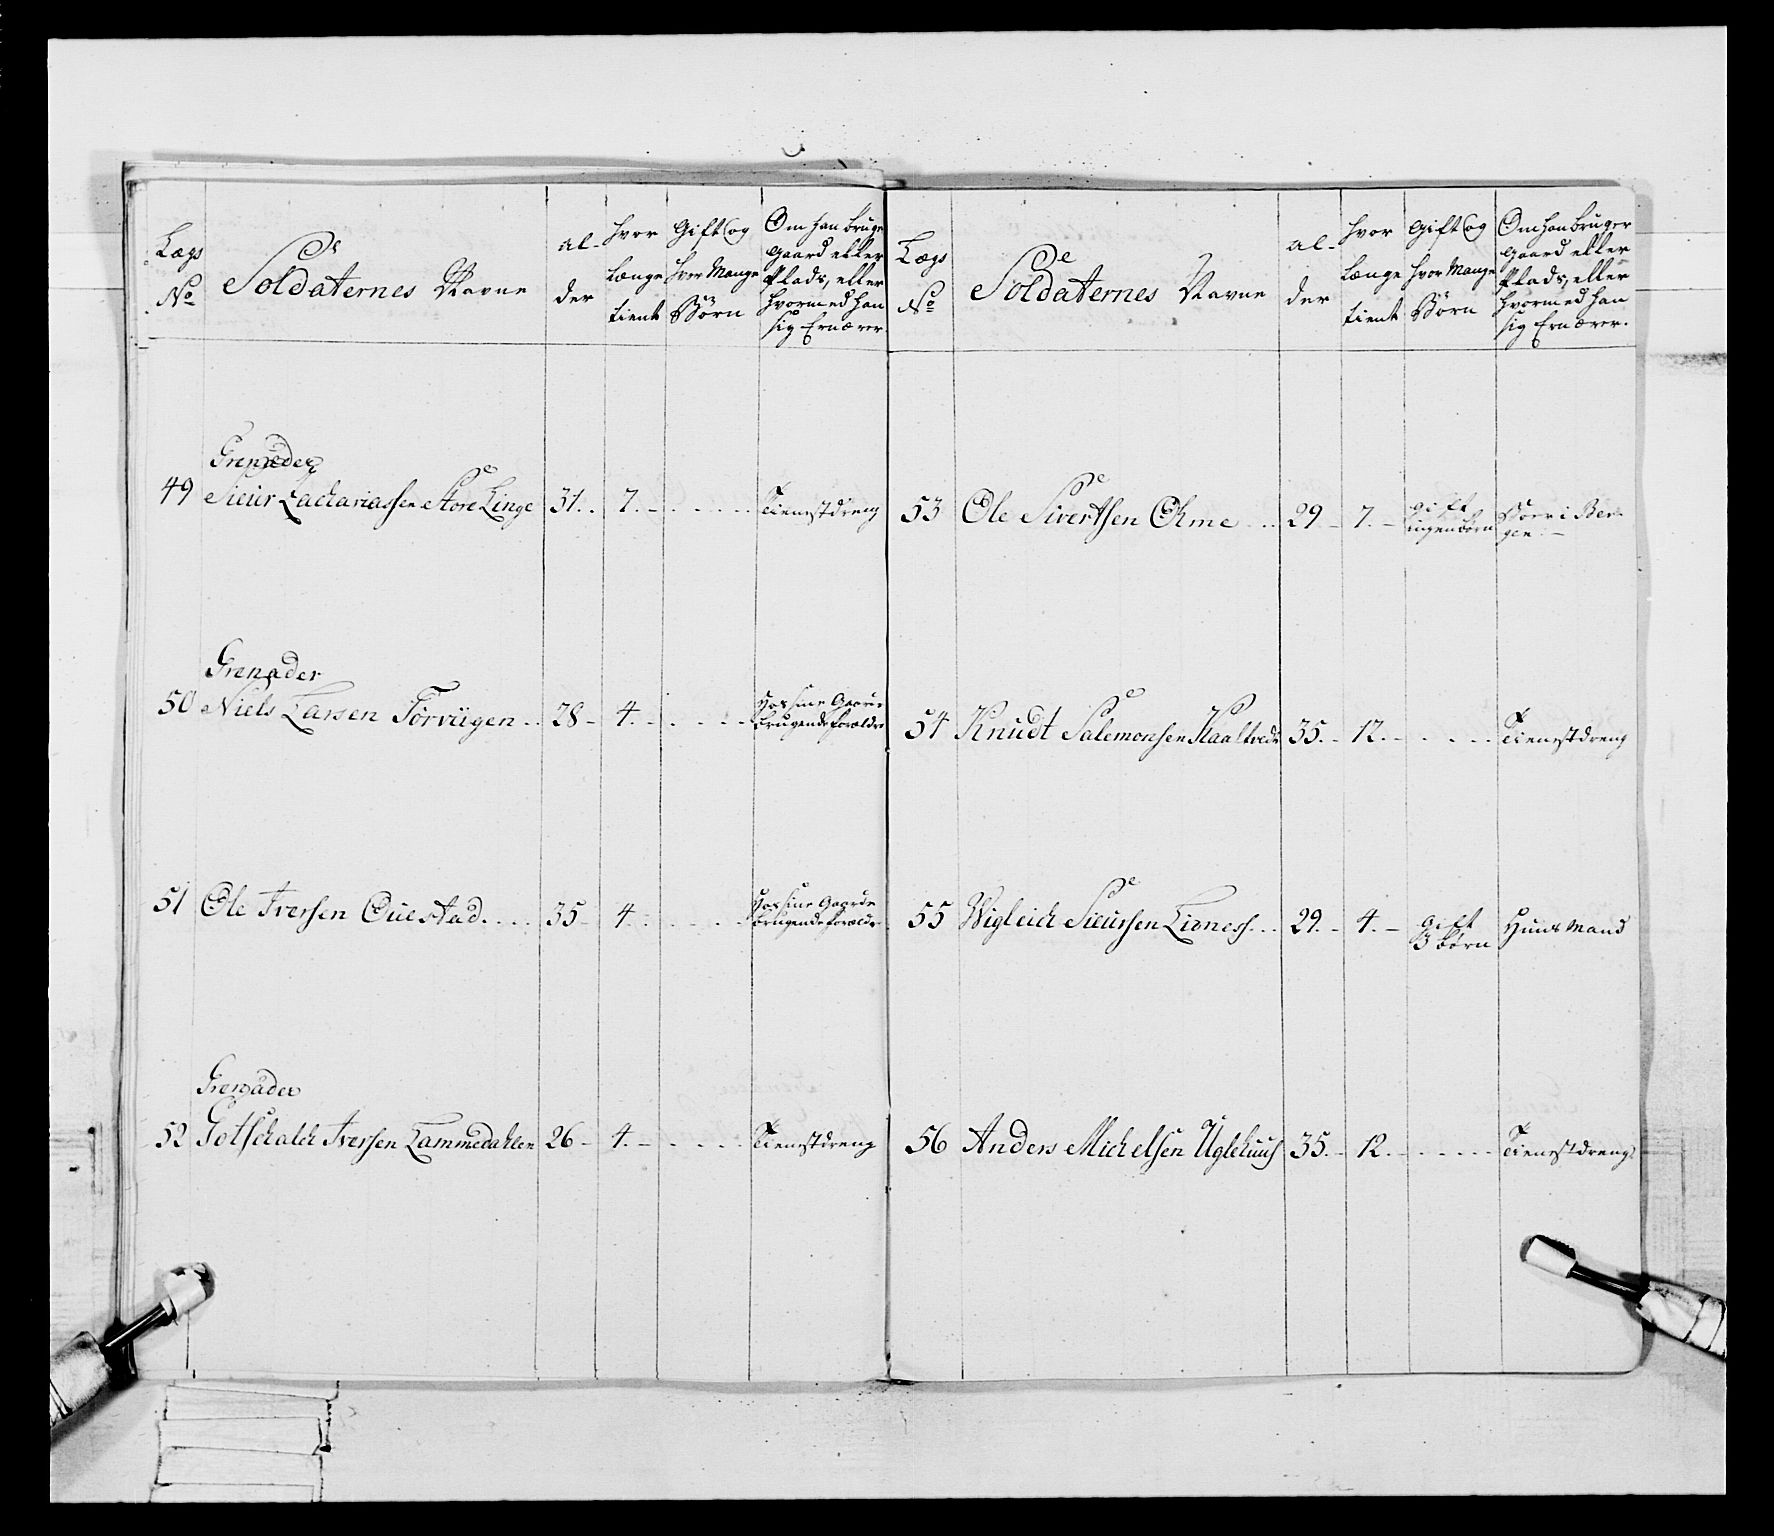 Lægs
No
Soldaternes Navne
Al-
der
hvor
længe
tient
Gift og
hvor Mange
Börn
Om han bruger
Gaard eller
Plads, eller
hvormed han
sig Ernærer.
Grenader
49 Siur Zachariassen Store Linge 31. 7. Tienestdreng
Grenader
50 Niels Larsen Törvügen 28 4. hos sine Gaard
brugende forældre
51 Ole Iversen Ouestad 35 4. hos sine Gaard
brugende forældre
Grenader
52 Gotschalch Iversen Lammedahlen 26 4. Tienestdreng
Lægs
No
Soldaternes Navne
Al-
der
hvor
længe
tient
Gift og
hvor Mange
Börn
Om han bruger
Gaard eller
Plads, eller
hvormed han
sig Ernærer.
53 Ole Sivertsen Ohme 29 7. gift
ingen börn
Boer i Ber-
gen
54 Knudt Salemonsen Kaaltvedt 35. 12. Tienestdreng
55 Wigleich Siursen Lioness 29. 4. gift
3 börn
Huus Mand
56 Anders Michelsen Uglehuus 35. 12. Tienestdreng